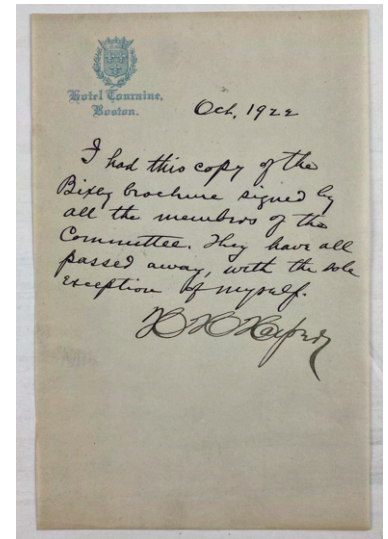 Hotel Touraine,
Boston.
Oct, 1922
I had this copy of the
Bixby brochure signed by
all the members of the
Committee. They have all
passed away, with the sole
exception of myself.
H H Harper